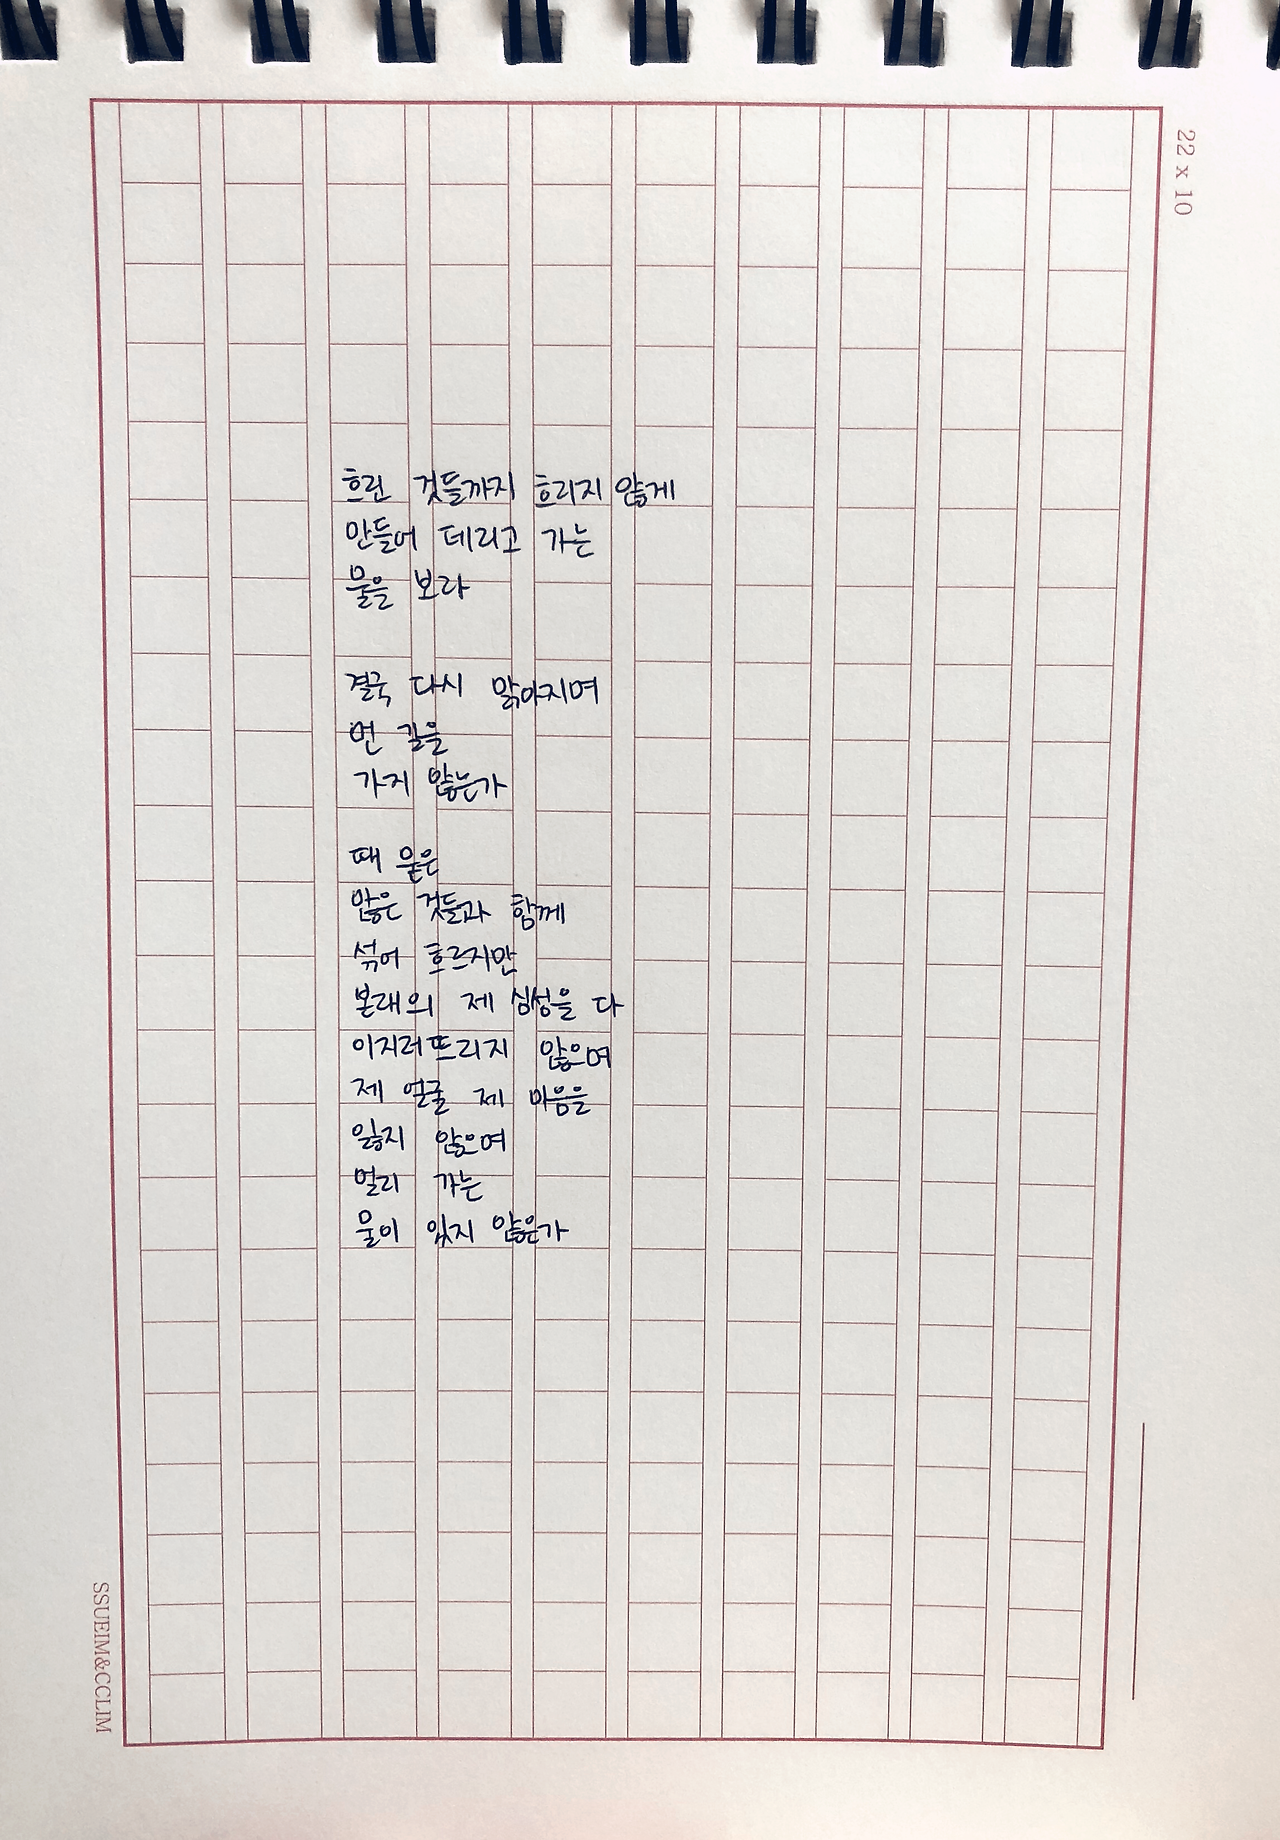 22 x 10
흐린 것들까지 흐리지 않게
만들어 데리고 가는
물을 보라
결국 다시 맑아지며
먼 길을
가지 않는가
때 묻은
많은 것들과 함께
섞여 흐르지만
본래의 제 심성을 다
이지러뜨리지 않으며
제 얼굴 제 마음을
잃지 않으며
멀리 가는
물이 있지 않은가
SSUEIM&CCLIM